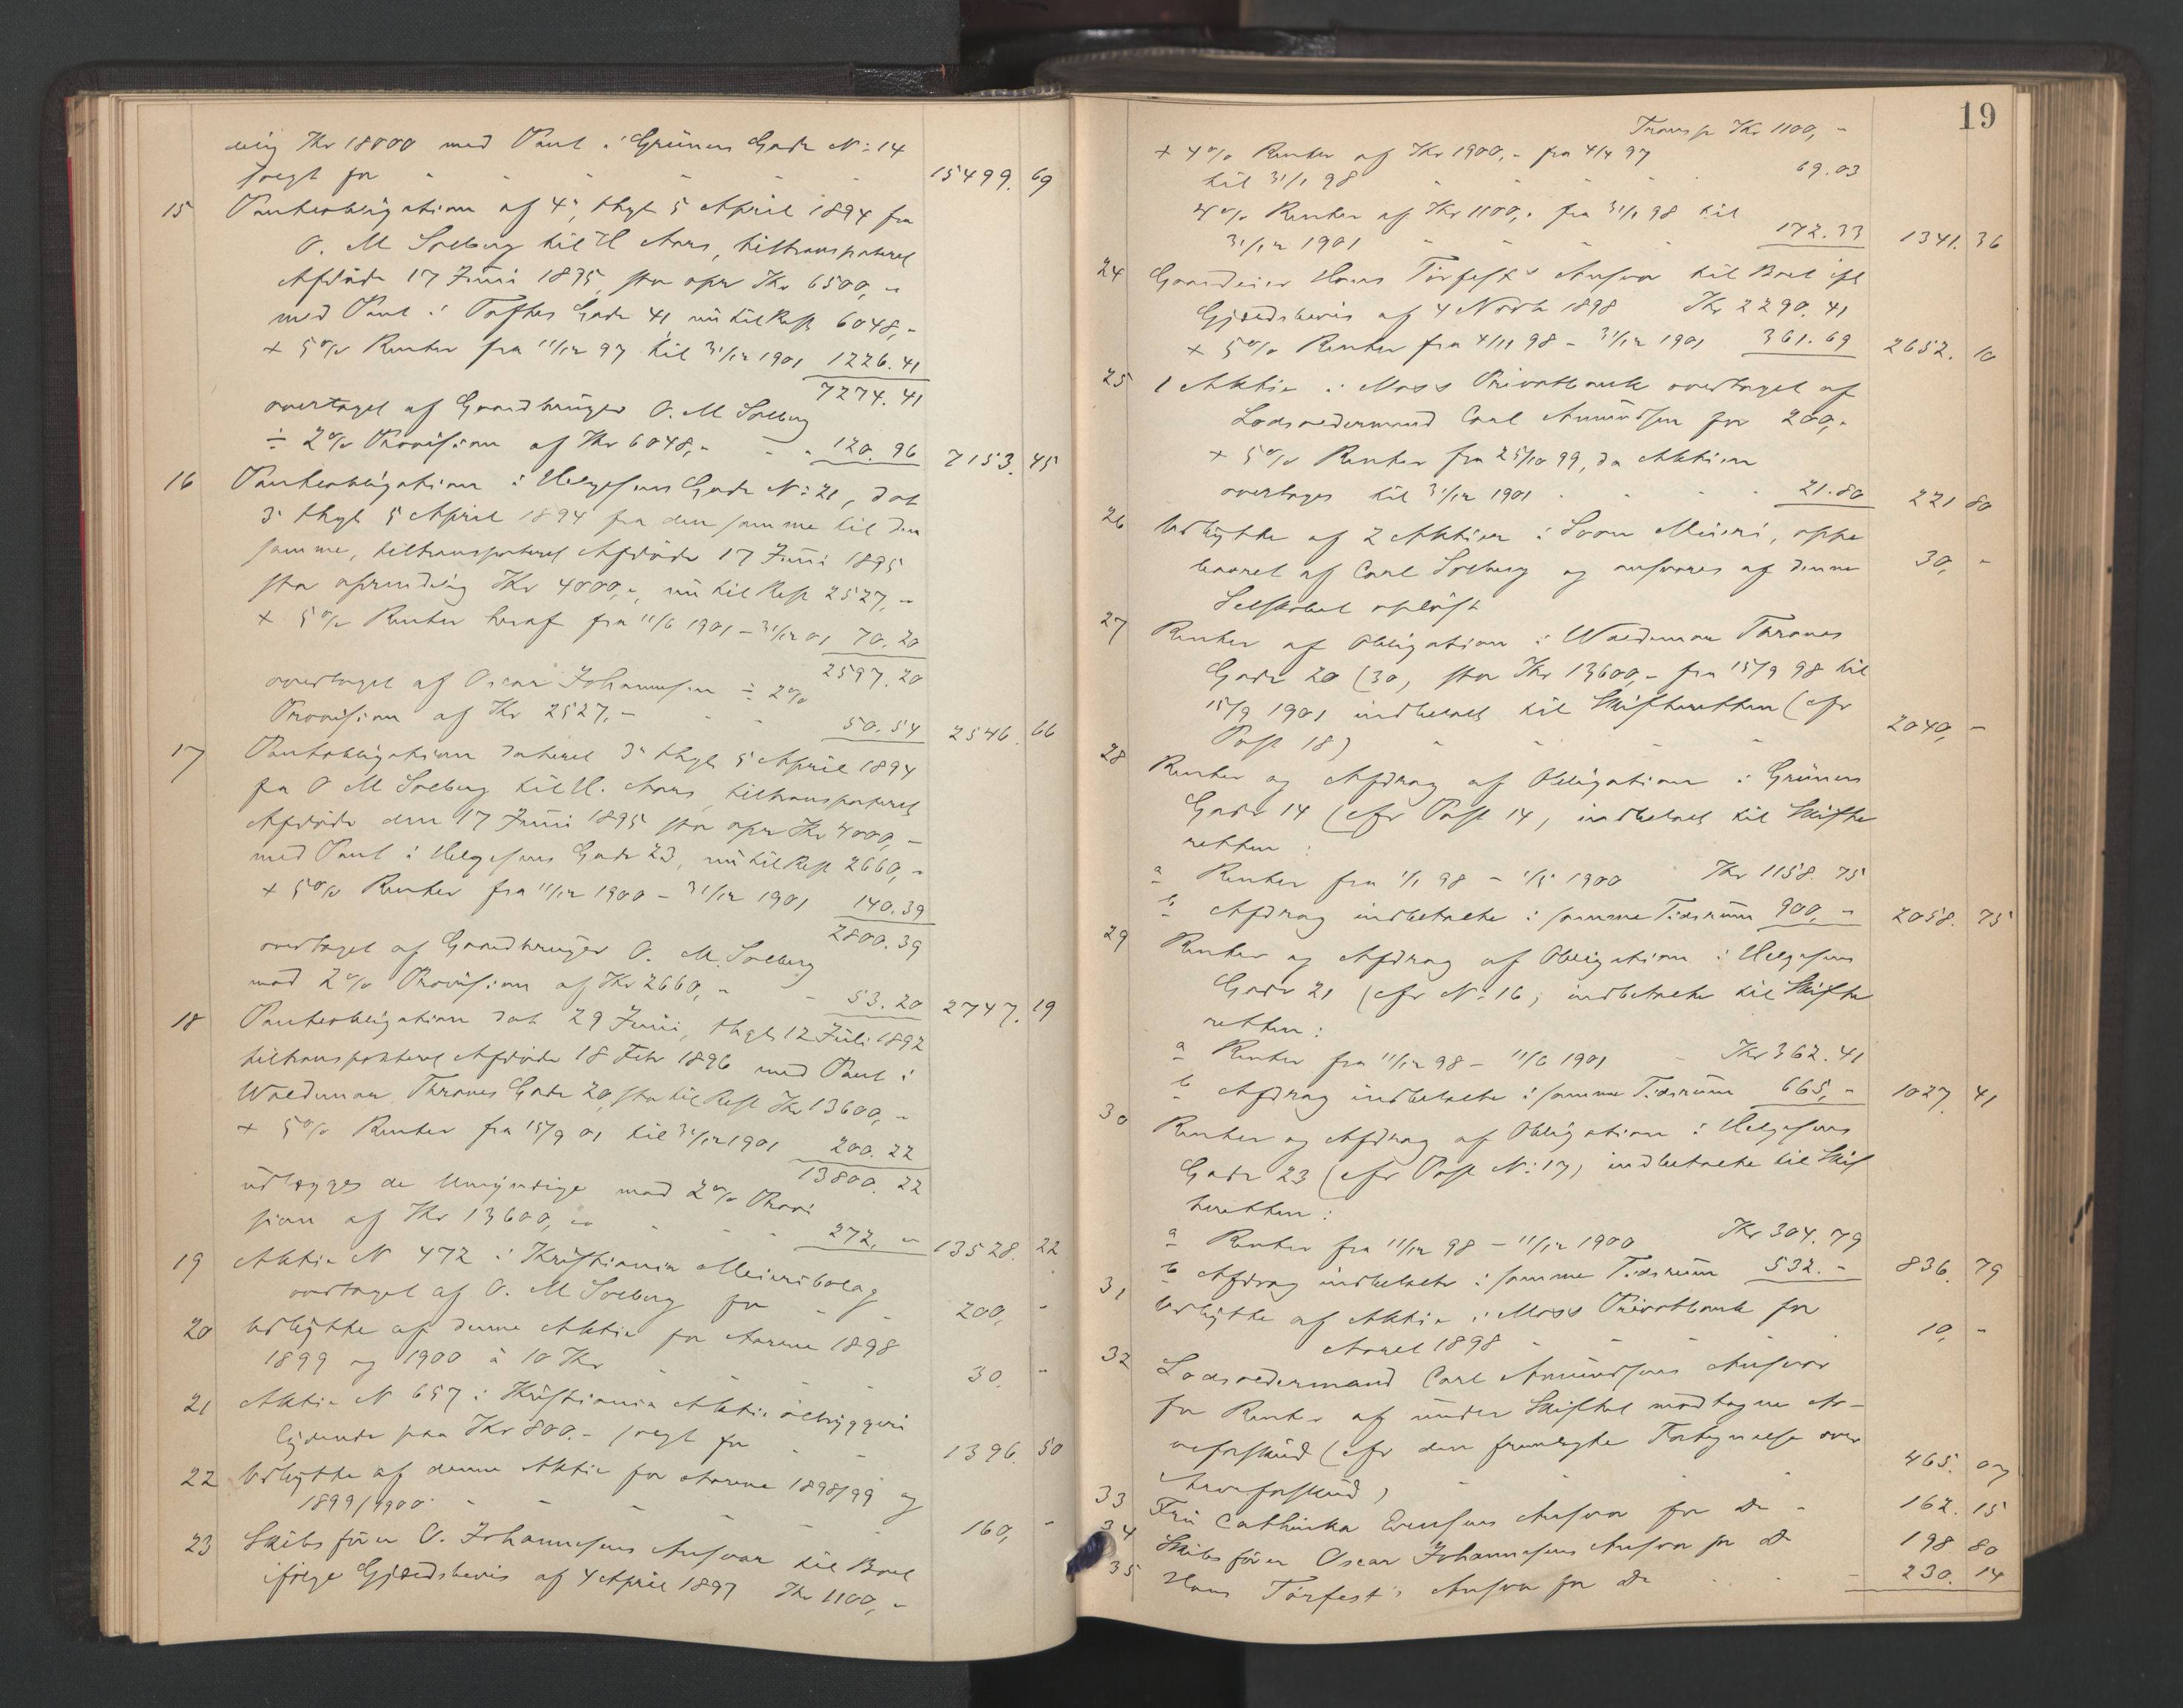 delig Kr 18000 med Pant i Grüners Gade No: 14
solgt for - - - - - 15499. 69
15 Pantobligation af 4de, thgl 5 April 1894 fra
O. M Solberg til H Aars, tiltransporteret
Afdøde 17 Juni 1895, stor opr Kr 6500,-
med Pant i Tofthes Gade 41 nu til Rest 6048,-
+ 5% Renter fra 11/12 97 til 31/12 1901 1226.41
7274.41
overtaget af Gaardbruger O. M Solberg
÷ 2% Provision af Kr 6048,- - - 120.96 7153.45
16 Pantobligation i Helgesens Gade No: 21, dat
3 thgl 5 April 1894 fra den samme til den
samme, tiltransporteret Afdøde 17 Juni 1895
stor oprindelig Kr 4000,-, nu til Rest 2527,-
+ 5% Renter heraf fra 11/6 1901 - 31/12 01 70.20
2597.20
overtaget af Oscar Johannesen ÷ 2%
Provision af Kr 2527,- - - 50.54 2546.66
17 Pantobligation dateret 3 thgl 5 April 1894
fra O M Solberg til H. Aars, tiltransporteret
Afdøde den 17 Juni 1895 stor opr Kr 4000,-
med Pant i Helgesens Gade 23, nu til Rest 2660,-
+ 5% Renter fra 11/12 1900 - 31/12 1901 140.39
2800.39
overtaget af Gaardbruger O. M. Solberg
mod 2% Provision af Kr 2660,- - 53.20 2747.19
18 Pantobligation dat 29 Juni, thgl 12 Juli 1892
tiltransporteret Afdøde 18 Febr 1896 med Pant i
Waldemar Thranes Gade 20, stor til Rest Kr 13600,-
+ 5% Renter fra 15/9 01 til 31/12 1901 200.22
13800.22
udlægges de Umyndige mod 2% Provi
sion af Kr 13600,- - - - 272,- 13528.22
19 Aktie N 472 i Kristiania Meieribolag
overtaget af O. M Solberg for - - 200,-
20 Udbytte af denne Aktie for Aarene 1898
1899 og 1900 à 10 Kr - - - 30.-
21 Aktie N 657 i Kristiania Aktieølbryggeri
lydende paa Kr 800.- solgt for - - 1396.50
22 Udbytte af denne Aktie for Aarene 1898/99 og
1899/1900 - - - - - 160,-
23 Skibsfører O. Johannesens Ansvar til Boet
ifølge Gjældsbevis af 4 April 1897 Kr 1100,-
19
Transp Kr 1100,-
+ 4% Renter af Kr 1900,- fra 4/4 97
til 31/1 98 - - - - 69.03
4% Renter af Kr 1100,- fra 31/1 98 til
31/12 1901 - - - - 172.33 1341.36
24 Gaardeier Hans Torfest's Ansvar til Boet ifl
Gjældsbevis af 4 Novb 1898 Kr 2290.41
+ 5% Renter fra 4/11 98 - 31/12 1901 361.69 2652.10
25 1 Aktie i Moss Privatbank overtaget af
Lodsoldermand Carl Amundsen for 200,-
+ 5% Renter fra 25/10 99, da Aktien
overtoges til 31/12 1901 - - - 21.80 221 80
26 Udbytte af 2 Aktier i Soon Meieri, oppe
baaret af Carl Solberg og ansvares af denne 30,-
Selskabet opløst
27 Renter af Obligation i Waldemar Thranes
Gade 20 (30, stor Kr 13600,- fra 15/9 98 til
15/9 1901 indbetalt til Skifteretten (cfr
Post 18) - - - - 2040,-
28 Renter og Afdrag af Obligation i Grüners
Gade 14 (cfr Post 14, indbetalt til Skifte
retten:
a Renter fra 1/1 98 - 1/5 1900 Kr 1158.75
b Afdrag indbetalte i samme Tidsrum 900,- 2058.75
29 Renter og Afdrag af Obligation i Helgesens
Gade 21 (cfr No: 16, indbetalte til Skifte
retten:
a Renter fra 11/12 98 - 11/6 1901 - Kr 362.41
b Afdrag indbetalte i samme Tidsrum 665,- 1027.41
30 Renter og Afdrag af Obligation i Helgesens
Gade 23 (cfr Post No: 17, indbetalte til Skif
teretten:
a Renter fra 11/12 98 - 11/12 1900 Kr 304.79
b Afdrag indbetalte i samme Tidsrum 532.- 836.79
31 Udbytte af Aktie i Moss Privatbank for
Aaret 1898 - - - 10,-
32 Lodsoldermand Carl Amundsens Ansvar
for Renter af under Skiftet modtagne Ar-
veforskud (cfr den fremlagte Fortegnelse over
Arveforskud) - - - 465.07
33 Fru Cathinka Evensens Ansvar for Do - 162.15
34 Skibsfører Oscar Johannesens Ansvar for Do 198 80
35 Hans Torfest's Ansvar for Do - - - 230.14